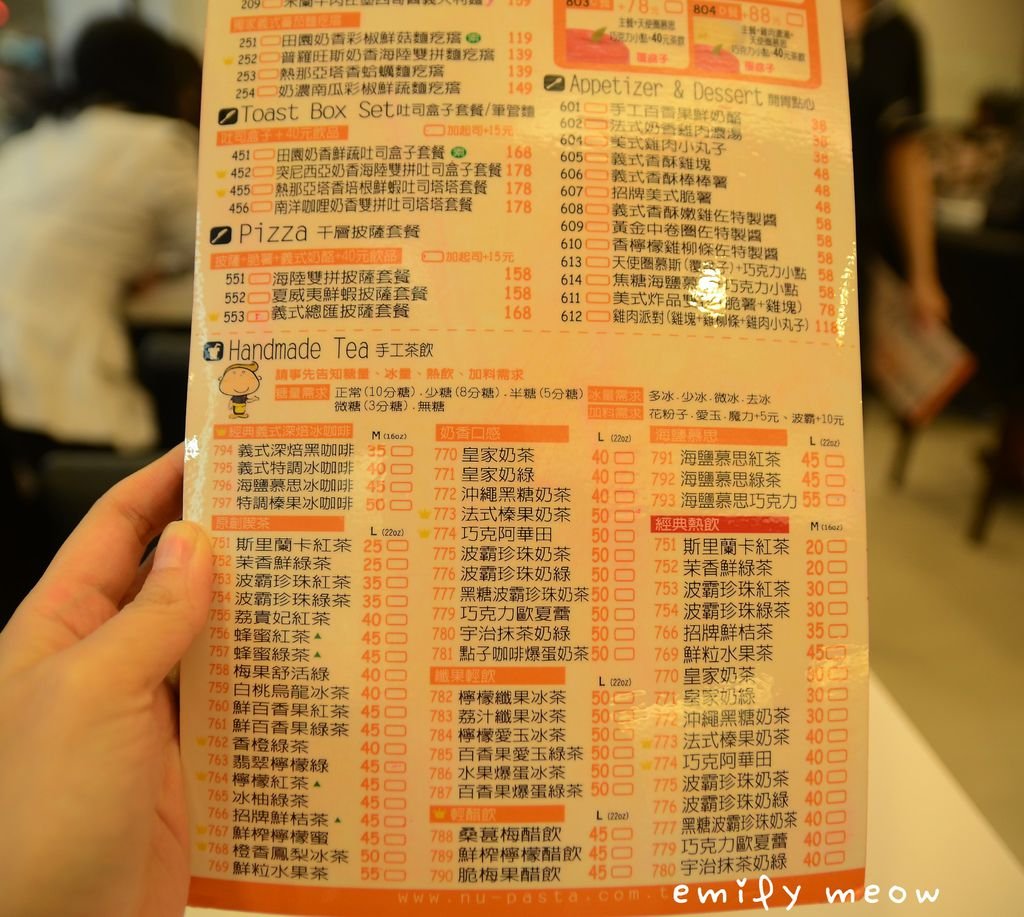 209 159
251 田園奶香彩椒鮮菇麵疙瘩 119
252 普羅旺斯奶香海陸雙拼麵疙瘩 139
253 熱那亞塔香蛤蠣麵疙瘩 139
254 奶濃南瓜彩椒鮮蔬麵疙瘩 149
Toast Box Set 吐司盒子套餐/筆管麵
吐司盒子+40元飲品 加起司+15元
451 田園奶香鮮蔬吐司盒子套餐 168
452 突尼西亞奶香海陸雙拼吐司塔塔套餐 178
455 熱那亞塔香培根鮮蝦吐司塔塔套餐 178
456 南洋咖哩奶香雙拼吐司塔塔套餐 178
Pizza 千層披薩套餐
披薩+脆薯+義式奶酪+40元飲品 加起司+15元
551 海陸雙拼披薩套餐 158
552 夏威夷鮮蝦披薩套餐 158
553 義式總匯披薩套餐 168
803 +78元
804 +88元
巧克力小點+40元茶飲
巧克力小點+40元茶飲
覆盆子
覆盆子
Appetizer & Dessert 開胃點心
601 手工百香果鮮奶酪 38
602 法式奶香雞肉濃湯 38
604 美式雞肉小丸子 38
605 義式香酥雞塊 48
606 義式香酥棒棒薯 48
607 招牌美式脆薯 48
608 義式香酥嫩雞佐特製醬 58
609 黃金中卷圈佐特製醬 58
610 香檸檬雞柳條佐特製醬 58
613 天使圈慕斯(覆盆子)+巧克力小點 58
614 焦糖海鹽慕 巧克力小點 58
611 美式炸品雙 脆薯+雞塊) 78
612 雞肉派對(雞塊+雞柳條+雞肉小丸子) 118
Handmade Tea 手工茶飲
請事先告知糖量、冰量、熱飲、加料需求
糖量需求 正常(10分糖).少糖(8分糖).半糖(5分糖)
微糖(3分糖).無糖
冰量需求 多冰.少冰.微冰.去冰
加料需求 花粉子.愛玉.魔力+5元、波霸+10元
經典義式深焙冰咖啡 M (16oz)
794 義式深焙黑咖啡 35
795 義式特調冰咖啡 40
796 海鹽慕思冰咖啡 45
797 特調榛果冰咖啡 50
原創喫茶 L (22oz)
751 斯里蘭卡紅茶 25
752 茉香鮮綠茶 25
753 波霸珍珠紅茶 35
754 波霸珍珠綠茶 35
755 荔貴妃紅茶 40
756 蜂蜜紅茶▲ 45
757 蜂蜜綠茶▲ 45
758 梅果舒活綠 40
759 白桃烏龍冰茶 40
760 鮮百香果紅茶 45
761 鮮百香果綠茶 45
762 香橙綠茶 40
763 翡翠檸檬綠 40
764 檸檬紅茶▲ 45
765 冰柚綠茶 45
766 招牌鮮桔茶▲ 40
767 鮮榨檸檬蜜 45
768 橙香鳳梨冰茶 50
769 鮮粒水果茶 55
奶香口感 L (22oz)
770 皇家奶茶 40
771 皇家奶綠 40
772 沖繩黑糖奶茶 40
773 法式榛果奶茶 50
774 巧克阿華田 50
775 波霸珍珠奶茶 50
776 波霸珍珠奶綠 50
777 黑糖波霸珍珠奶茶 50
779 巧克力歐夏蕾 50
780 宇治抹茶奶綠 50
781 點子咖啡爆蛋奶茶 50
纖果輕飲 L (22oz)
782 檸檬纖果冰茶 50
783 荔汁纖果冰茶 50
784 檸檬愛玉冰茶 50
785 百香果愛玉綠茶 50
786 水果爆蛋冰茶 50
787 百香果爆蛋綠茶 50
輕醋飲 L (22oz)
788 桑葚梅醋飲 45
789 鮮榨檸檬醋飲 45
790 脆梅果醋飲 45
海鹽慕思 L (22oz)
791 海鹽慕思紅茶 45
792 海鹽慕思綠茶 45
793 海鹽慕思巧克力 55
經典熱飲 M (16oz)
751 斯里蘭卡紅茶 20
752 茉香鮮綠茶 20
753 波霸珍珠紅茶 30
754 波霸珍珠綠茶 30
766 招牌鮮桔茶 35
769 鮮粒水果茶 45
770 皇家奶茶 30
771 皇家奶綠 30
772 沖繩黑糖奶茶 30
773 法式榛果奶茶 40
774 巧克阿華田 40
775 波霸珍珠奶茶 40
776 波霸珍珠奶綠 40
777 黑糖波霸珍珠奶茶 40
779 巧克力歐夏蕾 40
780 宇治抹茶奶綠 40
www.nu-pasta.com.t
emify meow